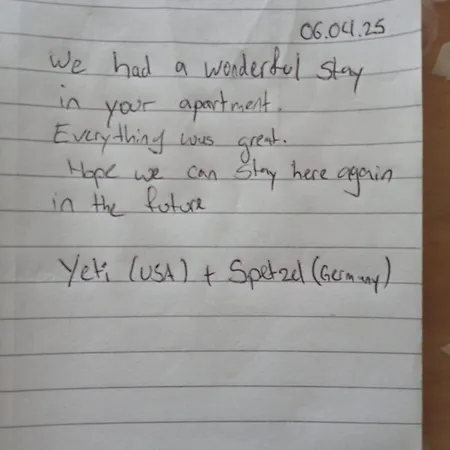 06.04.25
We had a wonderful stay
in your apartment.
Everything was great.
Hope we can stay here again
in the future
Yeti (USA) + Spetzel (Germany)